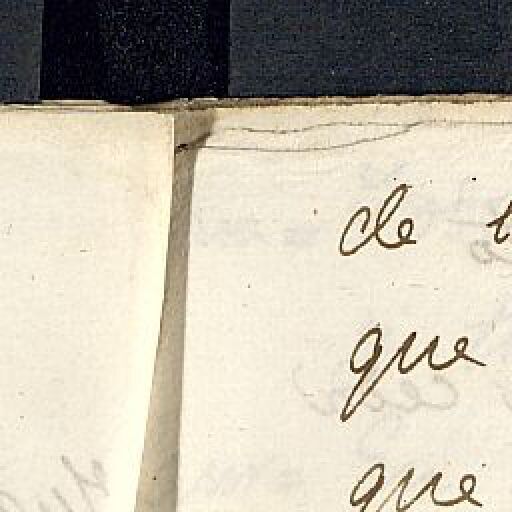 de
que
que